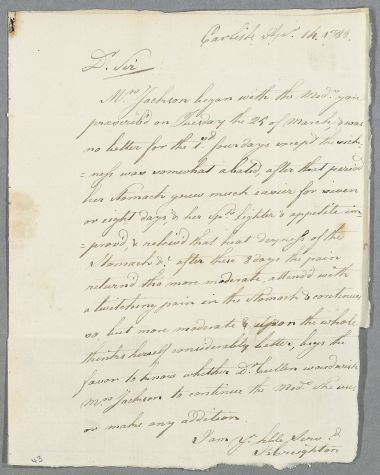 Carlisle Apr. 14. 1788.
Dr. Sir
Mrs Jackson began with the Med. you
prescrib'd on Tuesday the 25 of March, & was
no better for the 1st four days except the sick
=ness was somewhat abated, after that period
her Stomach grew much easier for seven
or eight days, & her lighter & appetite im
=prov'd, & reliev'd that heat dryness of the
Stomach &c after these 8 days the pain
return'd tho more moderate, attend'd with
a twitching pain in the Stomach & continues
so, but more moderate & upon the whole
thinks herself considerably better, begs the
favor to know whether Dr. Cullen would wish
Mrs Jackson to continue the Med. she uses
or make any addition.
I am yr. Serv.t
43